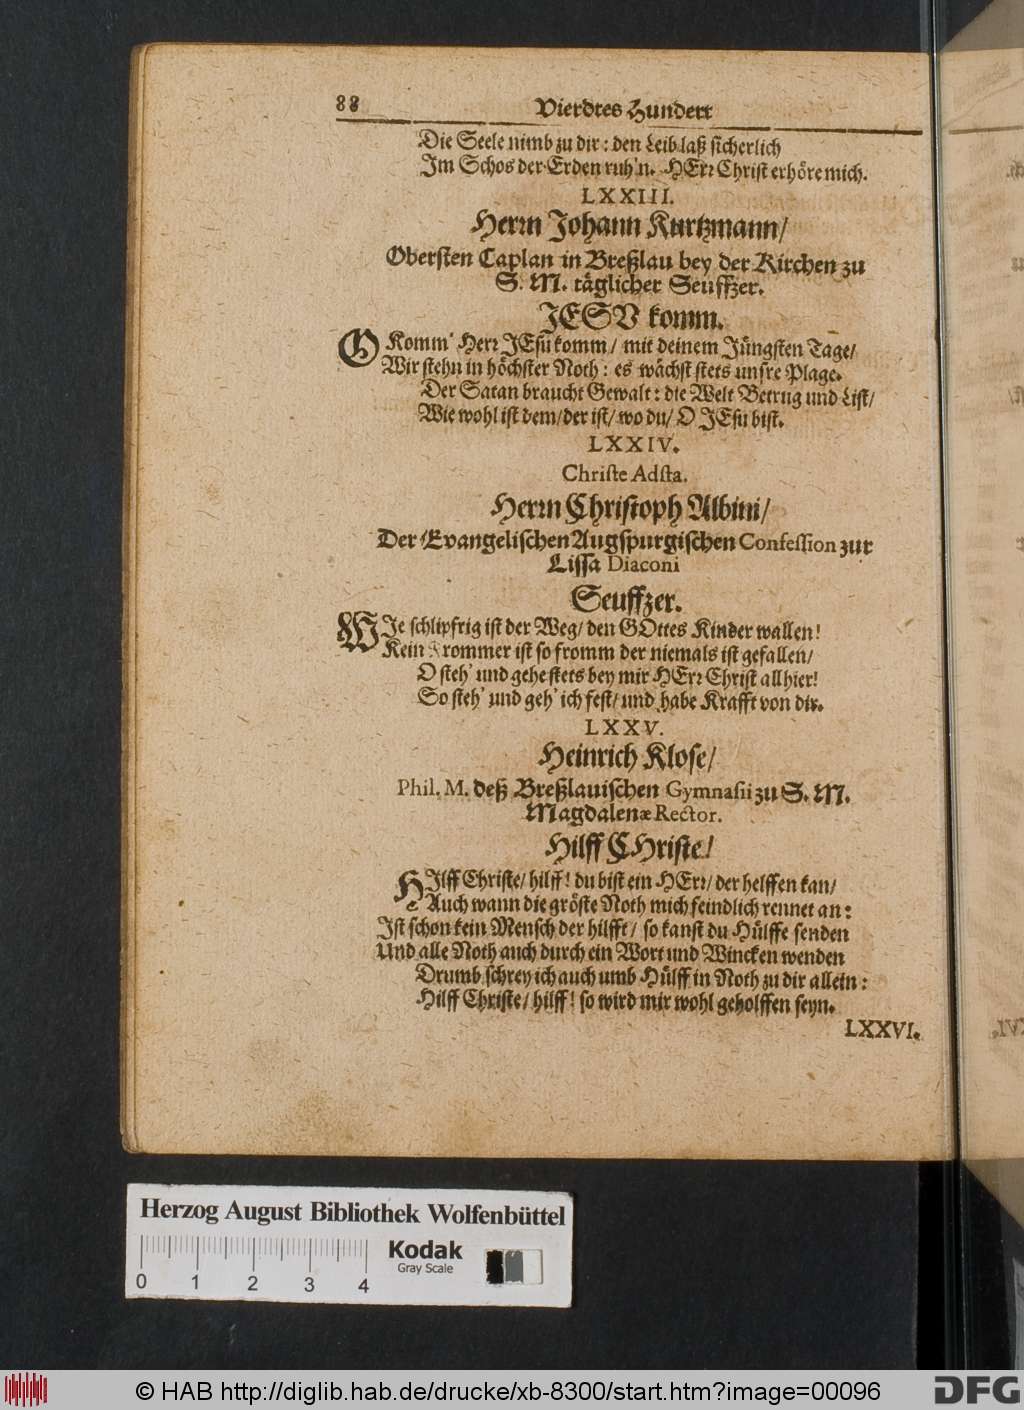 88 Vierdtes Hundert
Die Seele nimb zu dir : den Leib laß sicherlich
Im Schos der Erden ruh'n. HErr Christ erhöre mich.
LXXIII.
Herrn Johann Kurtzmann/
Obersten Caplan in Breßlau bey der Kirchen zu
S. M. täglicher Seuffzer.
JESU komm.
O Komm' Herr JEsu komm/ mit deinem Jüngsten Tage/
Wir stehn in höchster Noth : es wächst stets unsre Plage.
Der Satan braucht Gewalt : die Welt Betrug und List/
Wie wohl ist dem/ der ist/ wo du/ O JEsu bist.
LXXIV.
Christe Adsta.
Herrn Christoph Albini/
Der Evangelischen Augspurgischen Confession zur
Lissa Diaconi
Seuffzer.
WIe schlipfrig ist der Weg/ den GOttes Kinder wallen!
Kein Frommer ist so fromm der niemals ist gefallen/
O steh' und gehe stets bey mir HErr Christ allhier!
So steh' und geh' ich fest/ und habe Krafft von dir.
LXXV.
Heinrich Klose/
Phil. M. deß Breßlauischen Gymnasii zu S. M.
Magdalenæ Rector.
Hilff CHriste/
HIlff Christe/ hilff! du bist ein HErr/ der helffen kan/
Auch wann die gröste Noth mich feindlich rennet an :
Ist schon kein Mensch der hilfft/ so kanst du Hülffe senden
Und alle Noth auch durch ein Wort und Wincken wenden
Drumb schrey ich auch umb Hülff in Noth zu dir allein :
Hilff Christe/ hilff! so wird mir wohl geholffen seyn.
LXXVI.
Herzog August Bibliothek Wolfenbüttel
Kodak
Gray Scale
0 1 2 3 4
© HAB http://diglib.hab.de/drucke/xb-8300/start.htm?image=00096
DFG